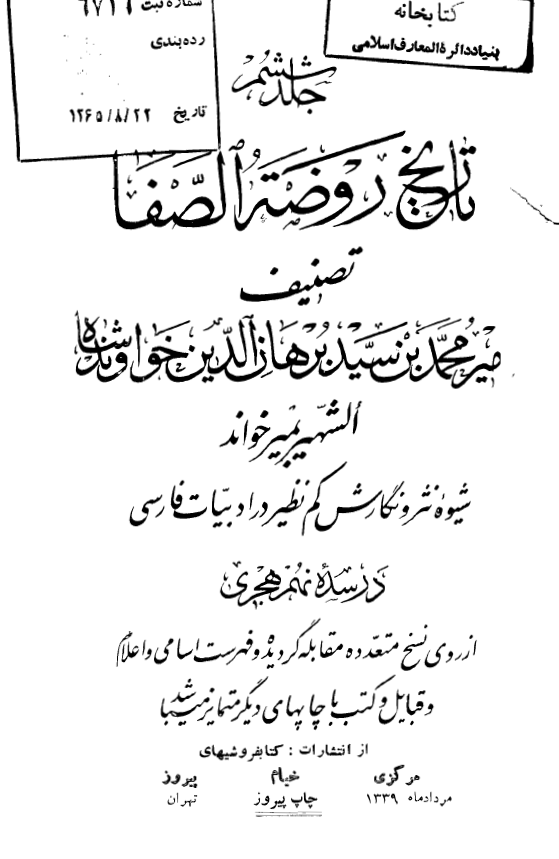 شماره ثبت ۶۷۱۶
رده‌بندی
تاریخ ۱۳۶۵/۸/۲۲
کتابخانه
بنیاد دائرة المعارف اسلامی
جلد ششم
تاریخ رَوضَة الصَّفَا
تصنیف
میر محمّد بن سیّد برهان الدّین خواوندشاه
الشهیر بمیر خواند
شیوهٔ نثر و نگارش کم نظیر در ادبیّات فارسی
در سدهٔ نهم هجری
از روی نسخ متعدّده مقابله گردیده و فهرست اسامی و اعلام
و قبایل و کتب با چاپهای دیگر متمایز میباشد
از انتشارات : کتابفروشیهای
مرکزی خیام پیروز
مردادماه ۱۳۳۹ چاپ پیروز تهران